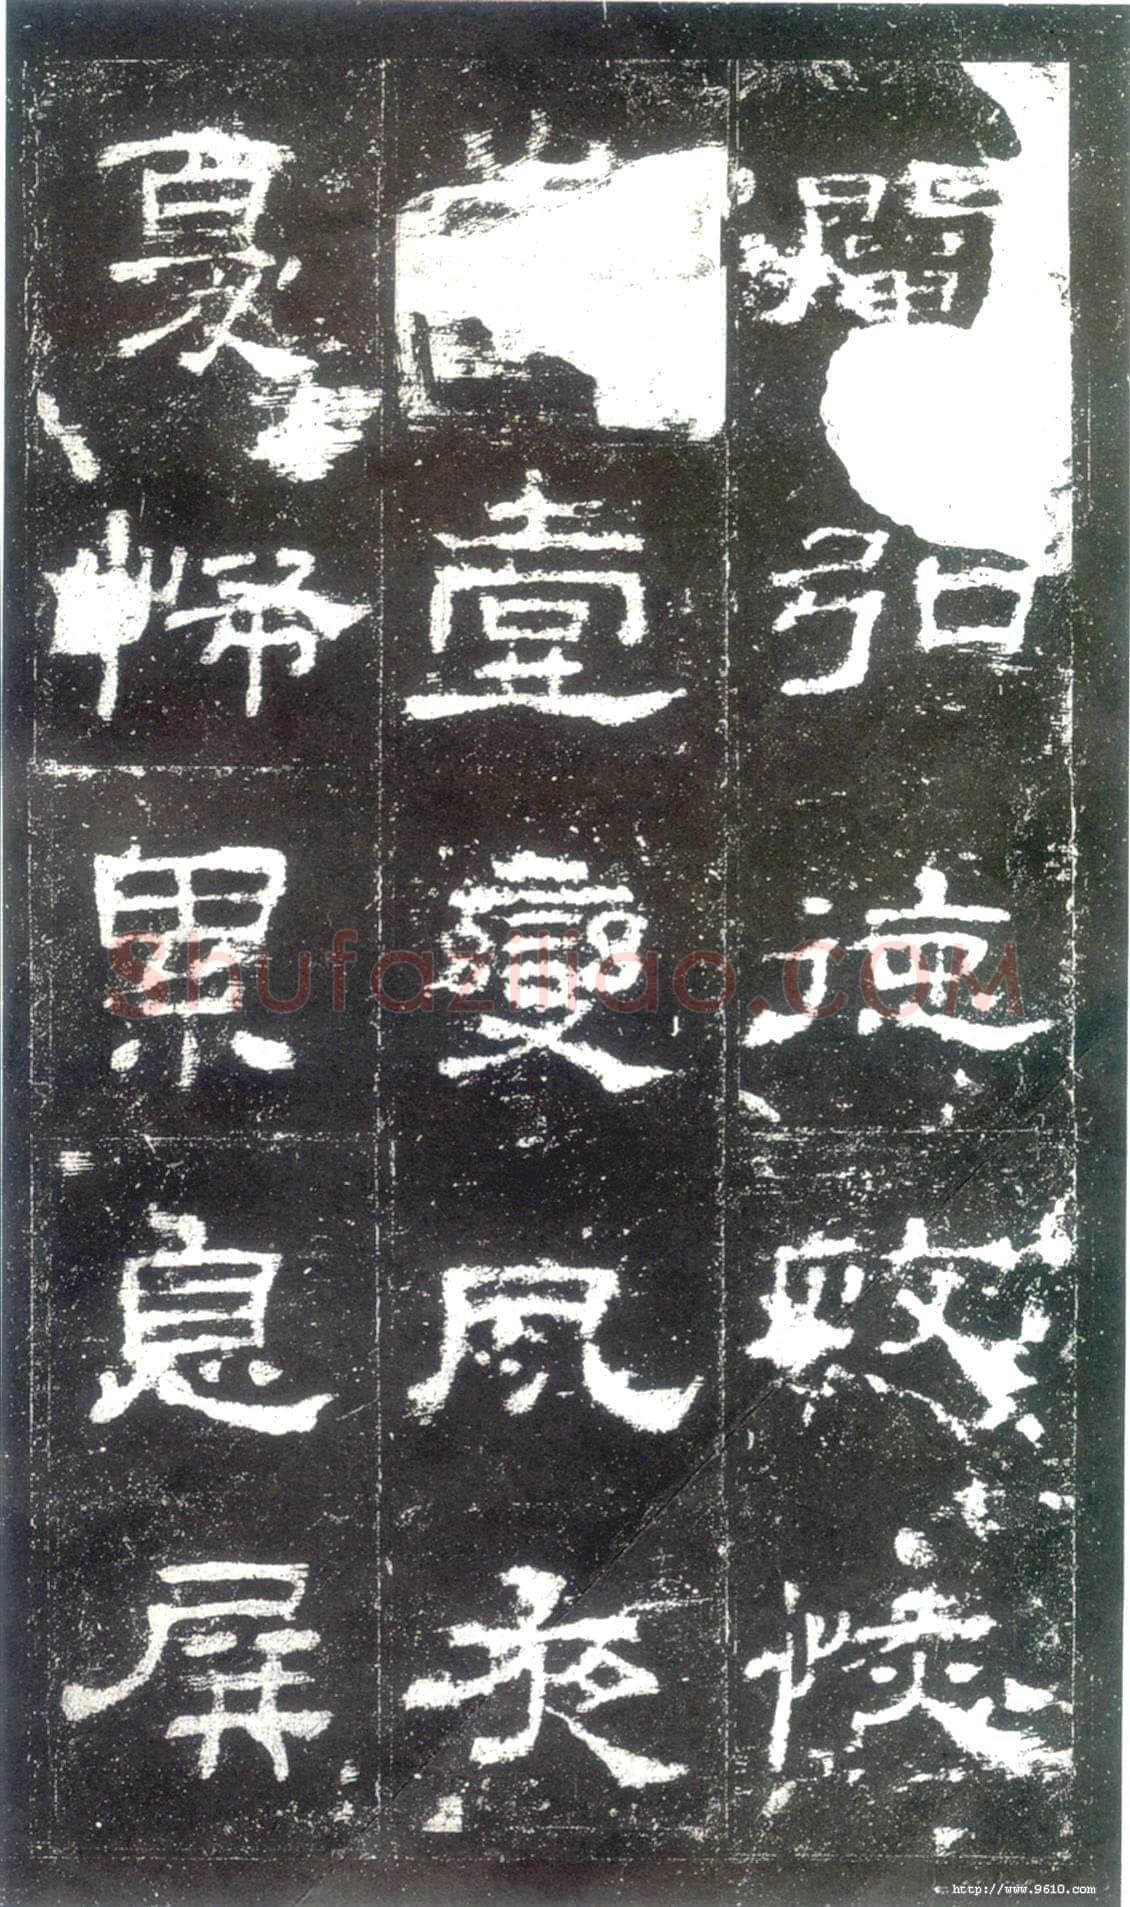 闡弘德政恢
壹變夙夜
憂怖累息屏
Shufaziliao.COM
http://www.9610.com